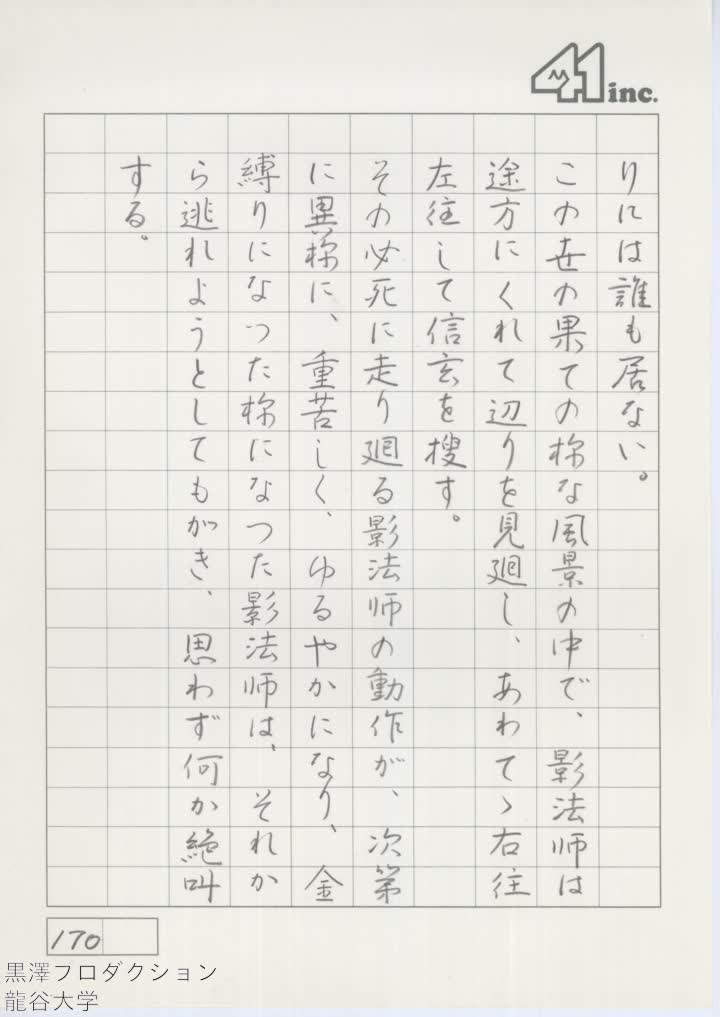 41 inc.
りには誰も居ない。
この世の果ての様な風景の中で、影法師は
途方にくれて辺りを見廻し、あわてゝ右往
左往して信玄を搜す。
その必死に走り廻る影法師の動作が、次第
に異様に、重苦しく、ゆるやかになり、金
縛りになつた様になつた影法師は、それか
ら逃れようとしてもがき、思わず何か絶叫
する。
170
黒澤プロダクション
龍谷大学